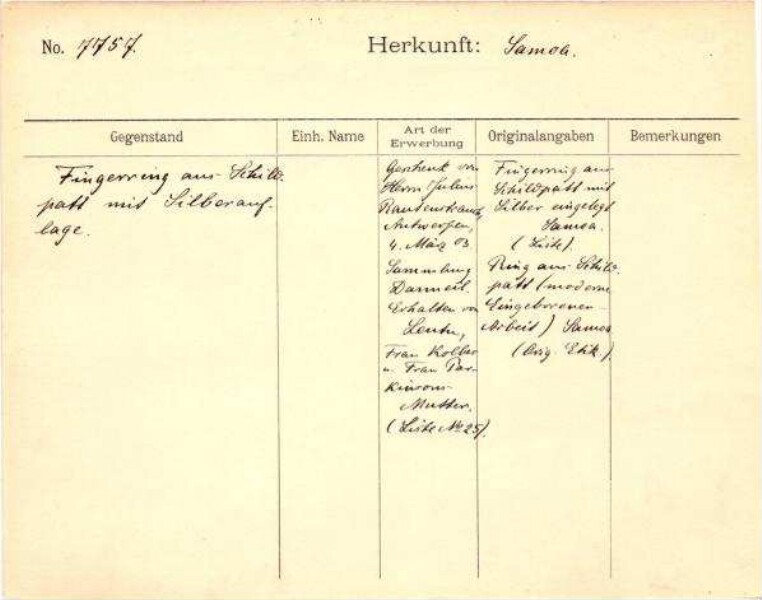 No. 7757.
Herkunft: Samoa.
Gegenstand
Einh. Name
Art der Erwerbung
Originalangaben
Bemerkungen
Fingerring aus Schild-
patt mit Silberauf-
lage.
Geschenk von
Herrn Julius
Rautenstrauch,
Antwerpen,
4. März 03
Sammlung
Erhalten von
Frau Kolbe
u. Frau Par-
kinsons
Mutter.
(Liste No 25).
Fingerring aus
Schildpatt mit
Silber eingelegt
Samoa.
(Liste).
Ring aus Schild-
patt (moderne
Eingeborenen-
Arbeit) Samoa
(Orig. Etik.)